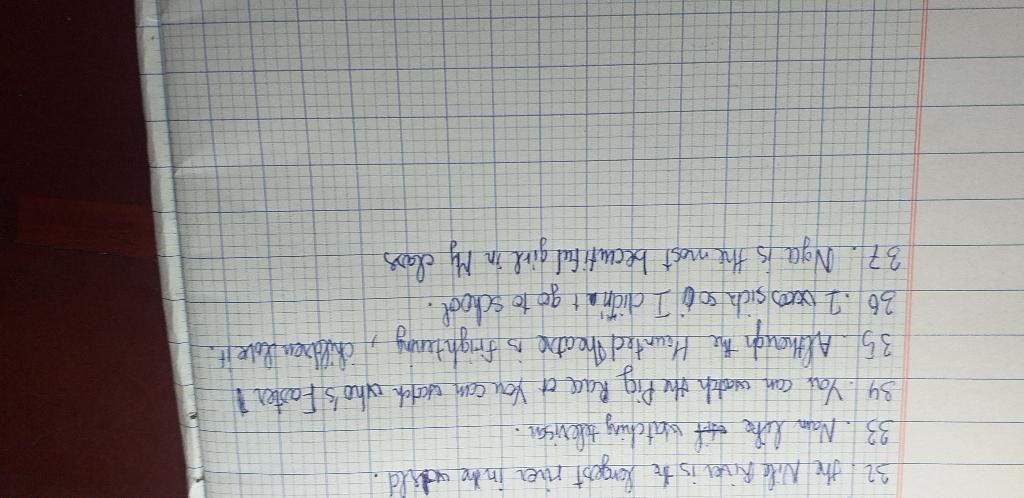 32. the Nile River is the longest river in the world.
33. Nam like watching television.
34. You can watch the Pig Race or You can watch who's Faster!
35. Although the Haunted theatre is frightening, children love it.
36. I was sick so I didn't go to school.
37. Nga is the most beautiful girl in My class